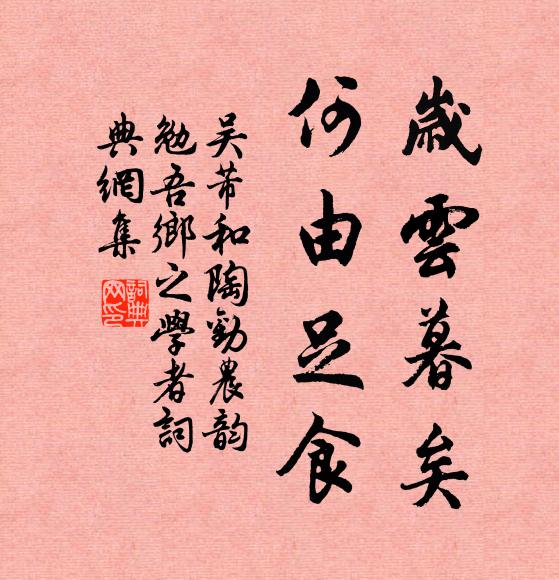 歲雲暮矣
何由足食
吴芾和陶勸農韵
勉吾鄉之學者詞
典網集
詞典
网印